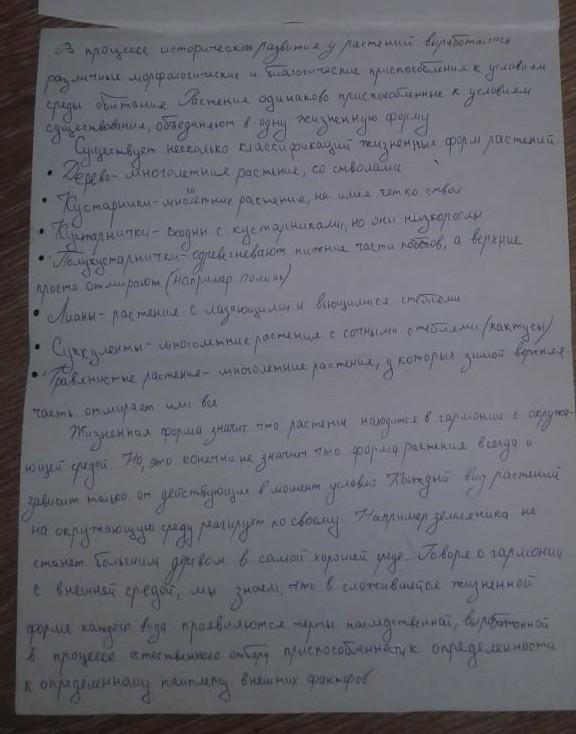 В процессе исторического развития у растений выработались
различные морфологические и биологические приспособления к условиям
среды обитания Растения одинаково приспособленные к условиям
существования, объединяют в одну жизненную форму
Существует несколько классификаций жизненных форм растений
• Дерево-многолетнее растение, со стволами
• Кустарники-многолетние растение, не имея четко ствол
• Кустарнички-сходны с кустарниками, но они низкорослы
• Полукустарнички-одревесневают нижние части побегов, а верхние
просто отмирают (например полынь)
• Лианы-растения с лазающими и вьющимися стеблями
• Суккуленты-многолетние растения с сочными стеблями (кактусы)
• Травянистые растения-многолетние растения, у которых зимой верхняя
часть отмирает или все
Жизненная форма значит что растение находится в гармонии с окружа-
ющей средой. Но, это конечно не значит что форма растения всегда и
зависит только от действующих в момент условий Каждый вид растений
на окружающую среду реагирует по своему. Например земляника не
станет большим деревом в самой хорошей среде. Говоря о гармонии
с внешней средой, мы знаем, что в сложившейся жизненной
форме каждого вида проявляются черты наследственной, выработанной
в процессе естественного отбора приспособленности, к определенности
к определенному комплексу внешних факторов